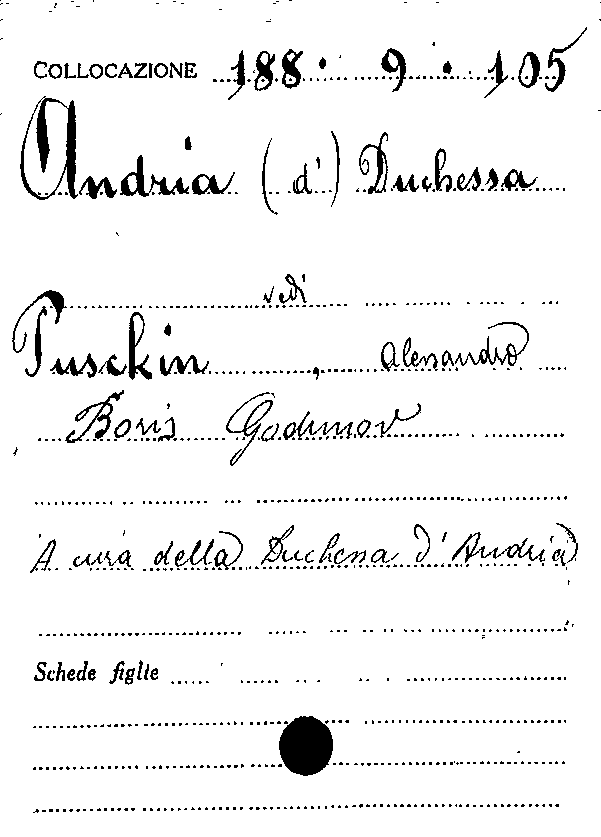 COLLOCAZIONE 188 · 9 · 105
Andria (d') Duchessa
vedi
Puschin, Alessandro
Boris Godunov
A cura della Duchessa d'Andria
Schede figlie